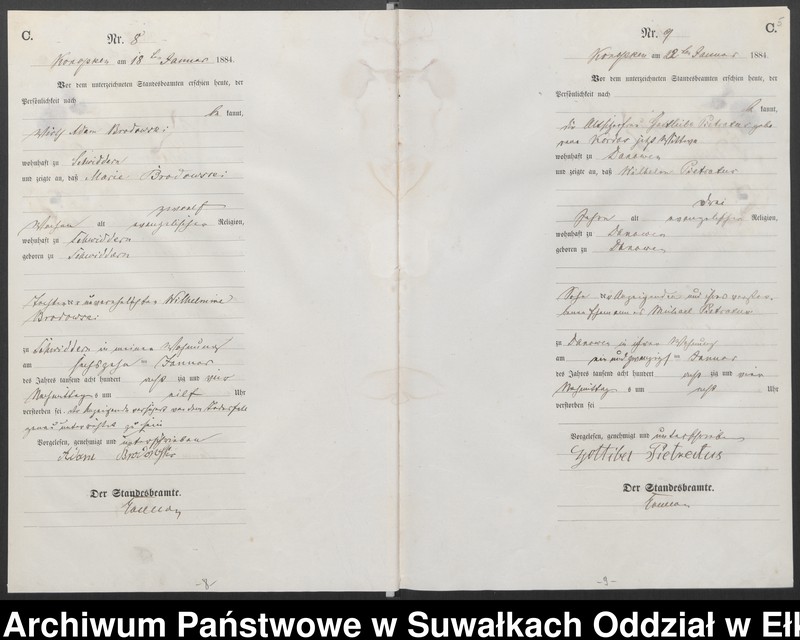 C.
Nr. 8
Konopken am 18 ten Januar 1884.
Vor dem unterzeichneten Standesbeamten erschien heute, der
Persönlichkeit nach
be kannt,
Wirth Adam Brodowski
wohnhaft zu Schwiddern
und zeigte an, daß Marie Brodowski
zwoelf
Wochen alt evangelischer Religion,
wohnhaft zu Schwiddern
geboren zu Schwiddern
Tochter der unverehelichten Wilhelmine
Brodowski
zu Schwiddern in meiner Wohnung
am sechszehn ten Januar
des Jahres tausend acht hundert acht zig und vier
Nachmittags um eilf Uhr
verstorben sei. der Anzeigende von dem Todesfall
genau unterrichtet zu sein
Vorgelesen, genehmigt und unterschrieben
Adam
Der Standesbeamte.
-8-
C. 5
Nr. 9
Konopken am ten Januar 1884
Vor dem unterzeichneten Standesbeamten erschien heute, der
Persönlichkeit nach
be kannt,
die jetzt Wittwe
wohnhaft zu Danowen
und zeigte an, daß Wilhelm
drei
Jahre alt evangelischer Religion,
wohnhaft zu Danowen
geboren zu Danowen
Sohn der Anzeigenden und ihres verstor-
benen Ehemannes Michael
zu Danowen in ihrer Wohnung
am ein und zwanzigst en Januar
des Jahres tausend acht hundert acht zig und vier
Nachmittags um acht Uhr
verstorben sei
Vorgelesen, genehmigt und unterschrieben
Der Standesbeamte.
-9-
Archiwum Państwowe w Suwałkach Oddział w Eł